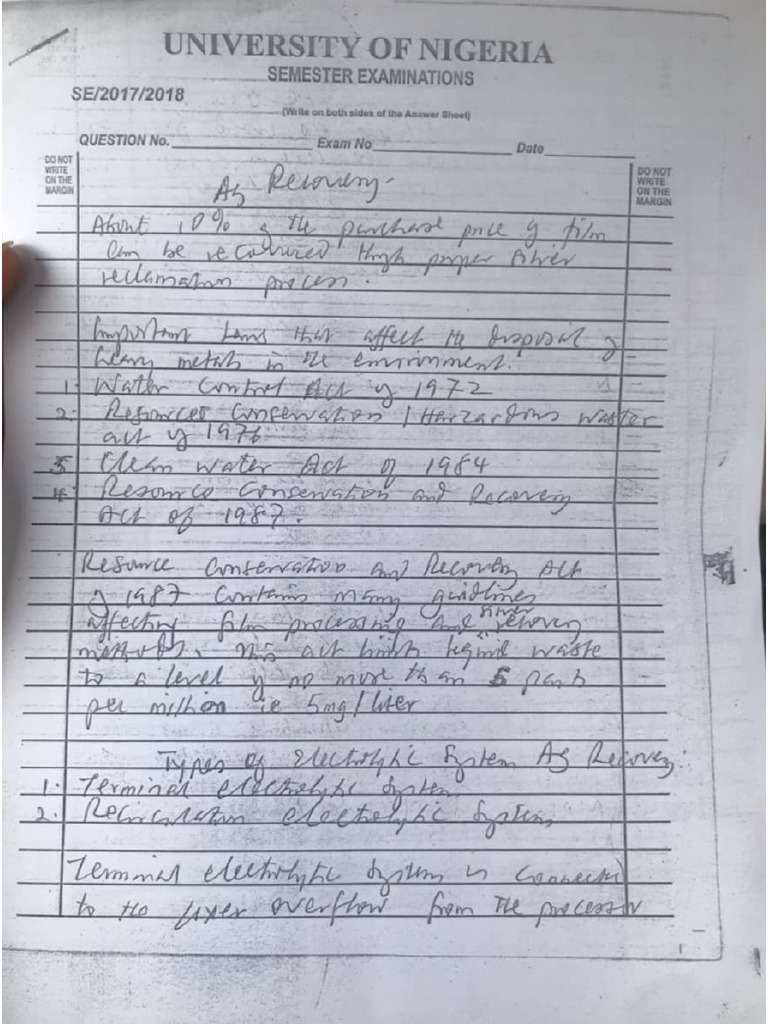 UNIVERSITY OF NIGERIA
SEMESTER EXAMINATIONS
SE/2017/2018
(Write on both sides of the Answer Sheet)
QUESTION No. Exam No Date
DO NOT
WRITE
ON THE
MARGIN
DO NOT
WRITE
ON THE
MARGIN
Ag Recovery
About 10% of the purchase price of film
can be recovered through proper silver
reclamation process.
Important laws that affect the disposal of
heavy metals in the environment.
1. Water Control Act of 1972
2. Resources Conservation / Harzardous waster
act of 1976
3 Clean water Act of 1984
4. Resource Conservation and Recovery
Act of 1987.
Resource Conservation and Recovery Act
of 1987 contains many guidlines
affecting film processing and silver recovery
methods. This act limits liquid waste
to a level of no more than 5 parts
per million ie 5mg/liter
Types of Electrolytic System Ag Recovery.
1. Terminal electrolytic System
2. Recirculation electrolytic System
Terminal electrolytic System is connected
to the fixer overflow from the processor